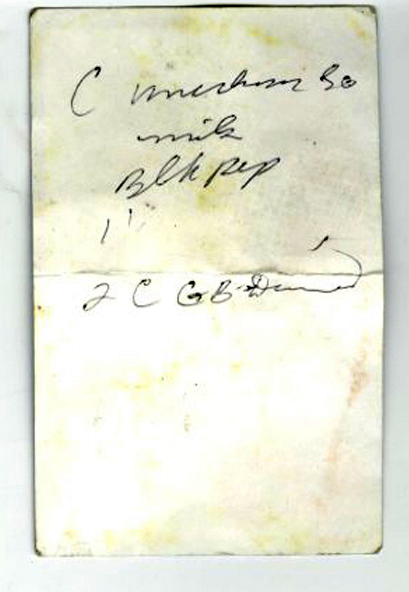 C mushroom So
milk
Blk pep
1
2 C GB Drained